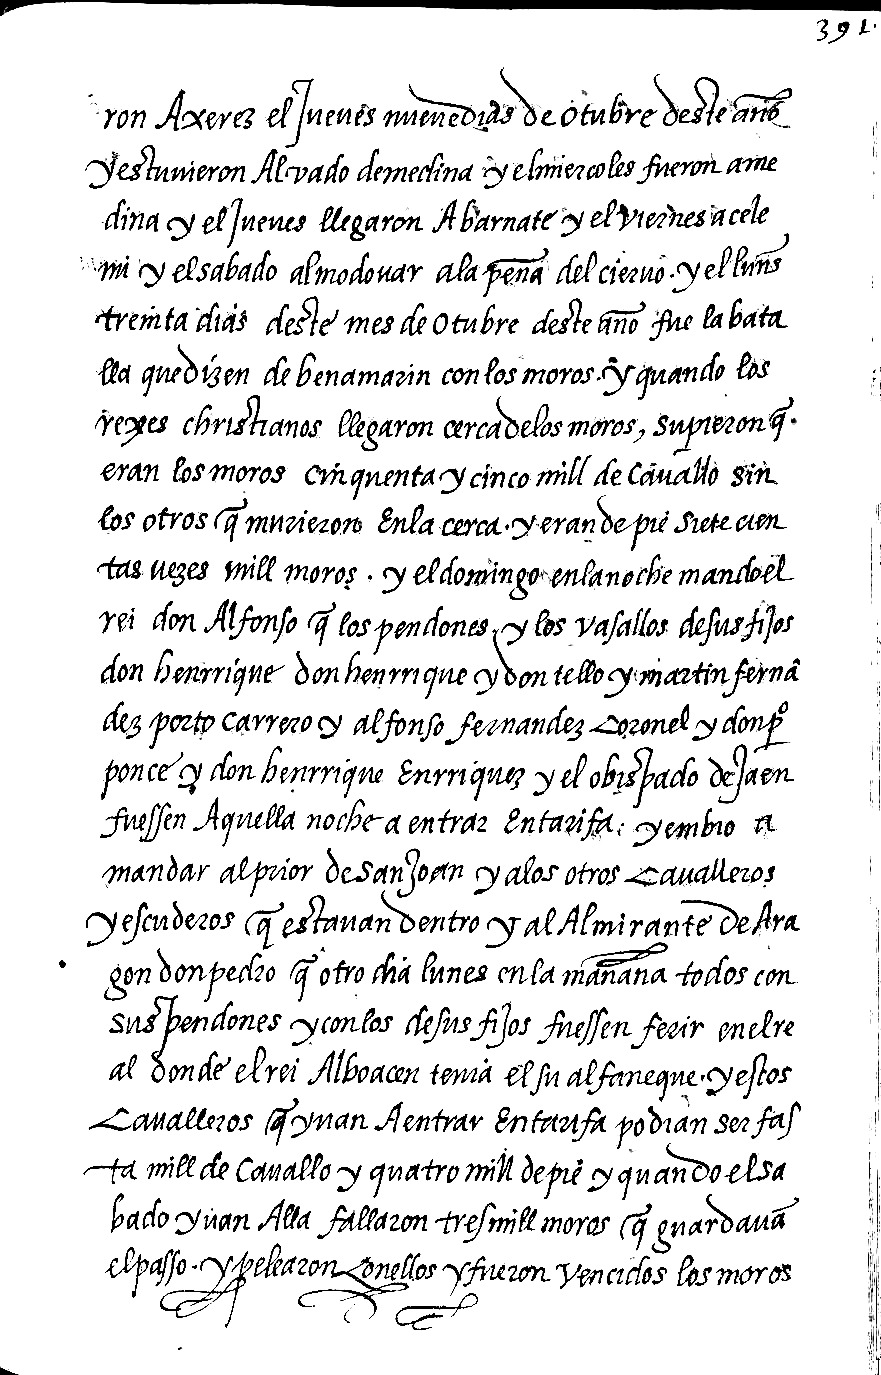 391.
ron Axerez el Jueves nueue dias de Otubre deste año
y estuuieron Al vado de medina y el miercoles fueron a me
dina y el Jueves llegaron A barnate y el viernes a cele
mi y el sabado almodouar a la peña del cieruo. y el lunes
treinta dias deste mes de Otubre deste año fue la bata
lla que dizen de benamarin con los moros. y quando los
reyes christianos llegaron cerca de los moros, supieron q̃.
eran los moros cinquenta y cinco mill de Cauallo sin
los otros q̃ murieron En la cerca. y eran de pie siete cien
tas vezes mill moros. y el domingo en la noche mando el
rei don Alfonso q̃ los pendones, y los vasallos de sus fijos
don henrrique don henrrique y don tello y martin fernã
dez porto carrero y alfonso fernandez Coronel y don pº
ponce y don henrrique Enrriquez y el obispado de Jaen
fuessen Aquella noche a entrar En tarifa. y embio a
mandar al prior de san Joan y a los otros Caualleros
y escuderos q̃ estauan dentro y al Almirante de Ara
gon don pedro q̃ otro dia lunes en la mañana todos con
sus pendones y con los de sus fijos fuessen ferir en el re
al donde el rei Alboacen tenia el su alfaneque. y estos
Caualleros q̃ yuan A entrar En tarifa podian ser fas
ta mill de Cauallo y quatro mill de pie y quando el sa
bado yuan Alla fallaron tres mill moros q̃ guardauã
el passo. y pelearon Con ellos y fueron vencidos los moros